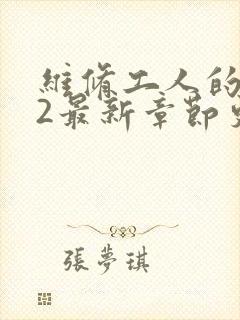 維脩工人的
2最新章節
張夢琪